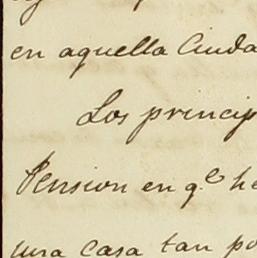 en aquella Ciuda
Los princip
Pension en q.e he
una casa tan po